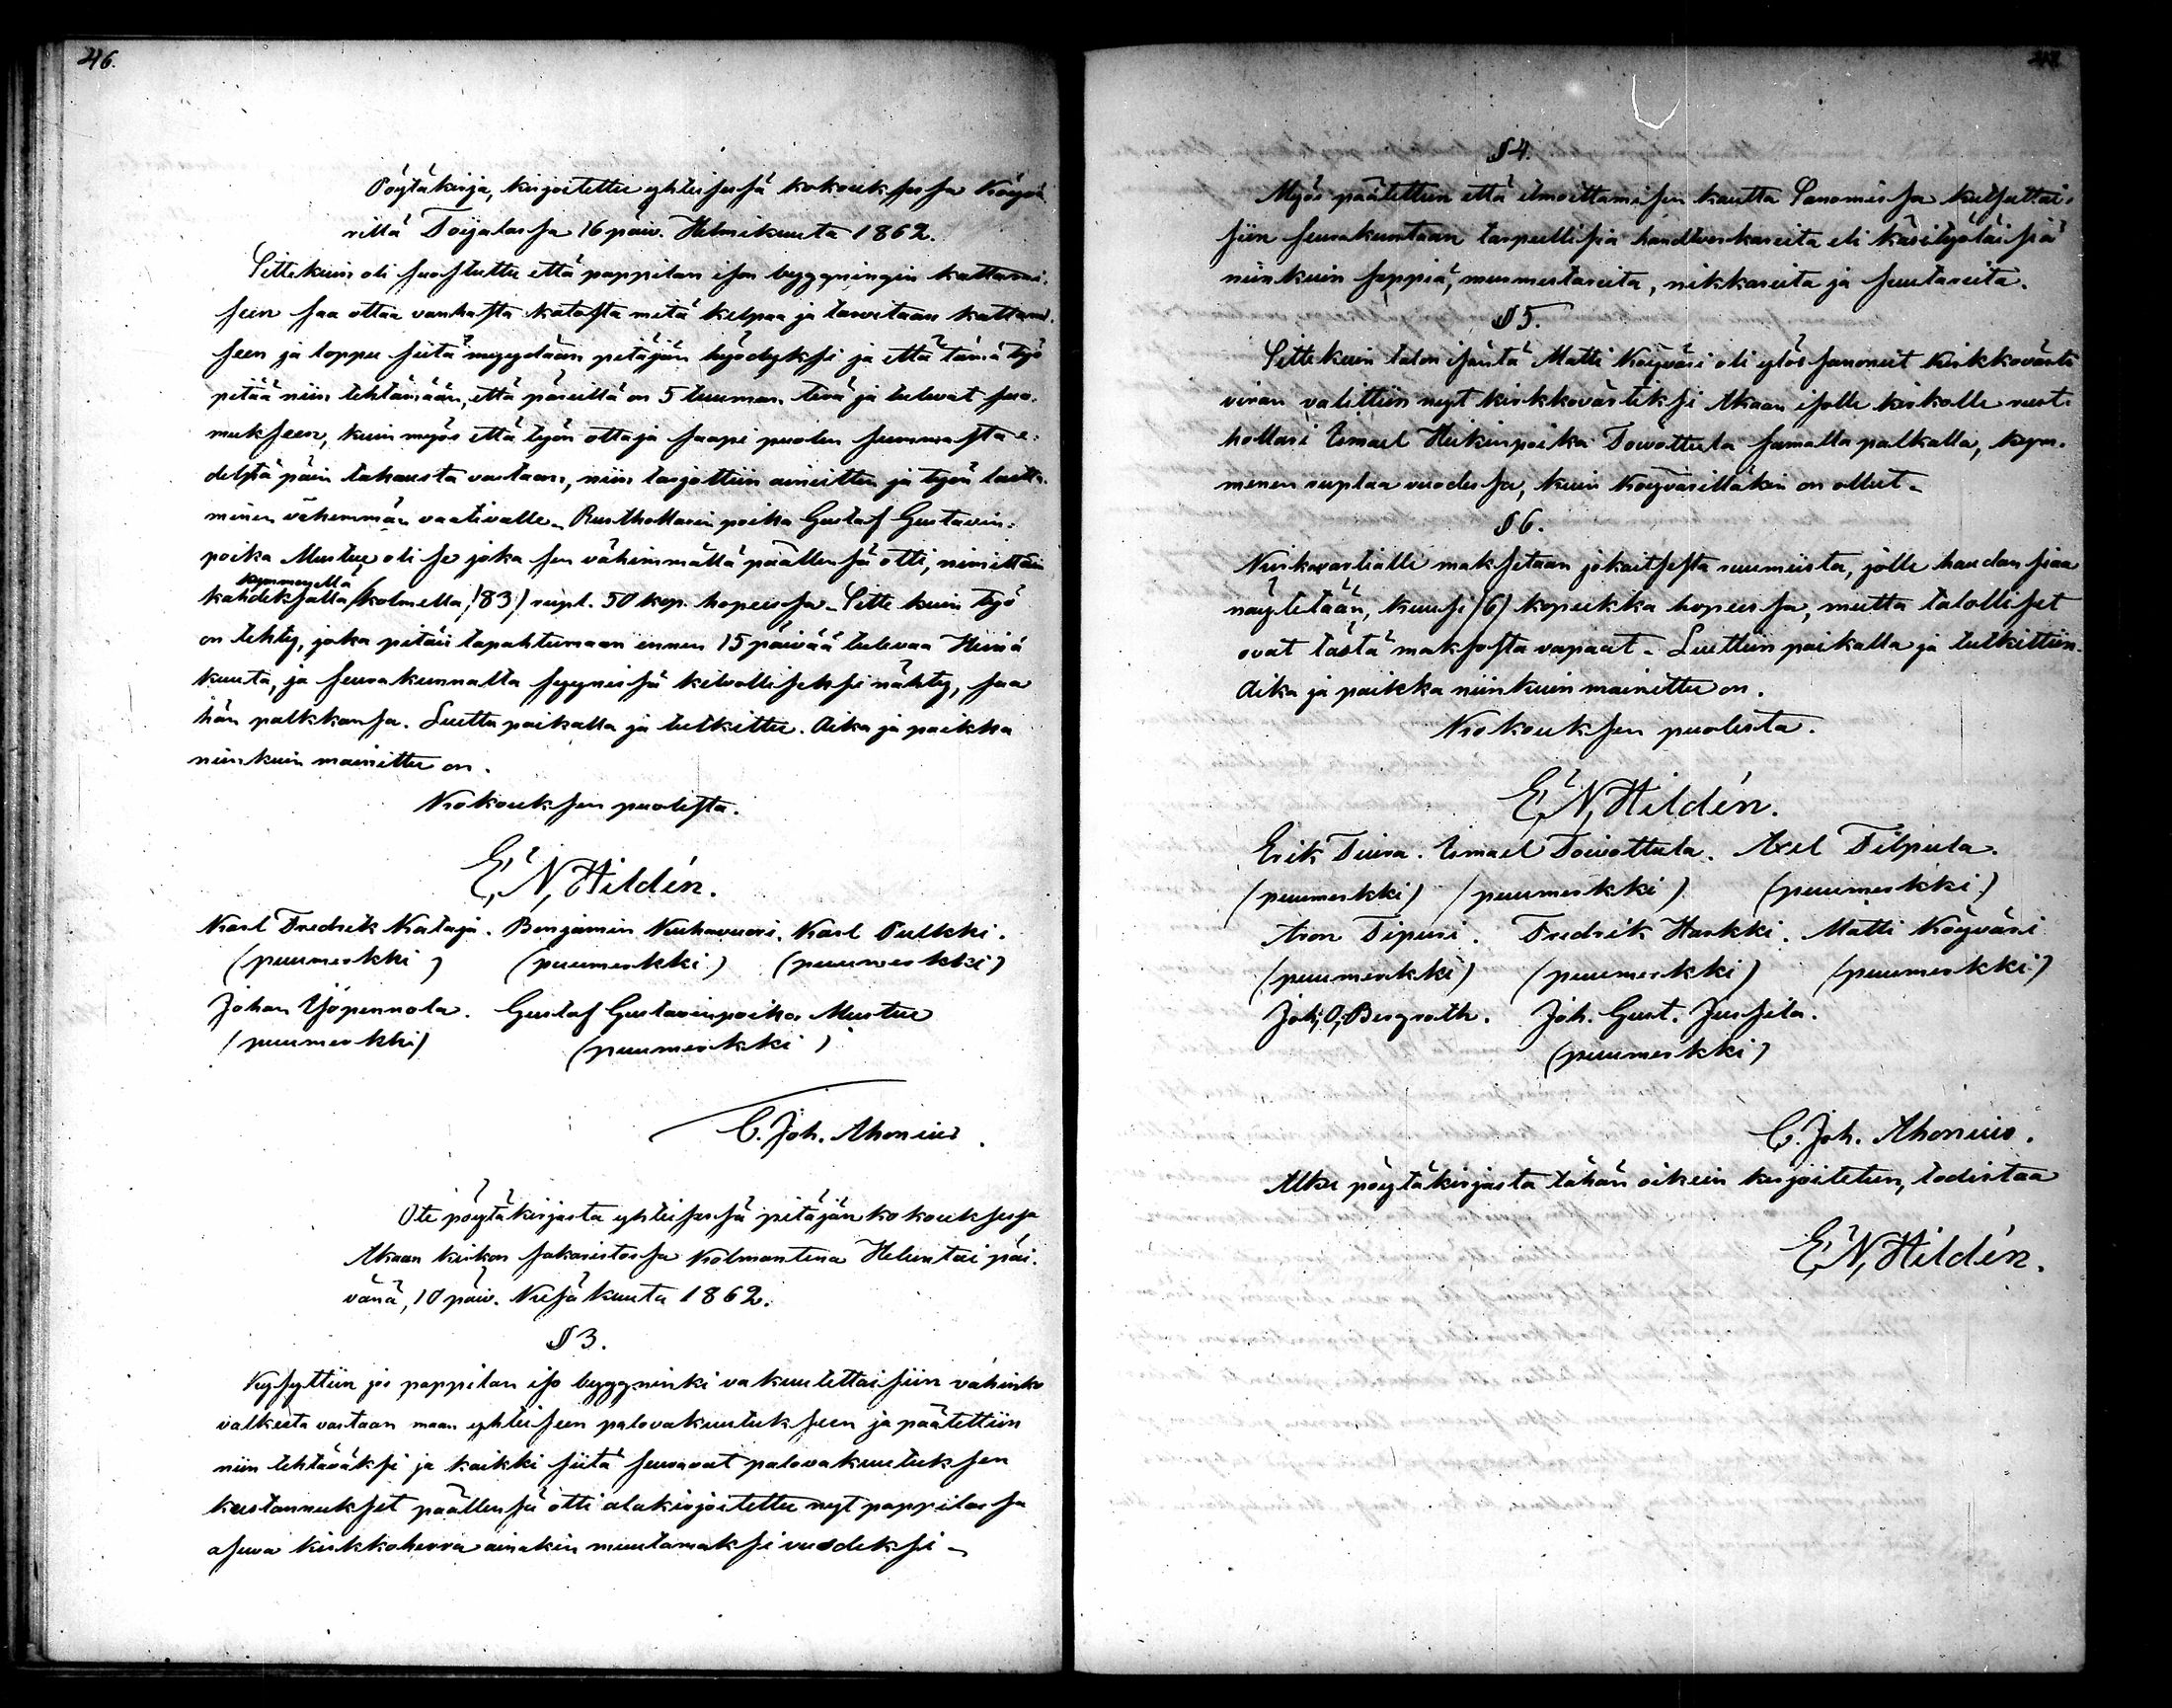 46.
Pöytäkirja, kirjoitettu yhteisessä kokouksessa Köyvä-
rillä Toijalassa 16 päiv. Helmikuuta 1862.
Sittekuin oli suostuttu että pappilan ison byggningin kattami-
seen saa ottaa vanhasta katosta mitä kelpaa ja tarvitaan kattami-
seen ja loppu siitä myydään pitäjän hyödyksi ja että tämä työ
pitää niin tehtämään, että päreillä on 5 tuuman terä ja tulevat suo-
mukseen, kuin myös että työn ottaja saapi puolen summasta e-
deltä päin takausta vastaan, niin tarjottiin aineitten ja työn teet-
minen vähemmän vaativalle. Rusthollarin poika Gustaf Gustavin-
poika Mustue oli se joka sen vähimmällä päällensä otti, nimittäin
kymmenellä
kahdeksalla kolmella /83/ rupl. 50 kop. hopeessa. Sitte kuin työ
on tehty, joka pitäis tapahtumaan ennen 15 päivää tulevaa Heinä
kuuta, ja seurakunnalta syynissä kelvolliseksi nähty, saa
hän palkkansa. Luettu paikalla ja tutkittu. Aika ja paikka
niinkuin mainittu on.
Kokouksen puolesta.
E. N. Hildén.
Karl Fredrik Kataja. Benjamin Kuehavuori. Karl Pulkki.
(puumerkki) (puumerkki) (puumerkki)
Johan Yöpennola. Gustaf Gustavinpoika Mustue
(puumerkki) (puumerkki)
C. Joh. Ahonius.
Ote pöytäkirjasta yhteisessä pitäjänkokouksessa
Akaan kirkon sakaristossa Kolmantena Heluntai päi-
vänä, 10 päiv. Kesäkuuta 1862.
§ 3.
Kysyttiin jos pappilan iso byggninki vakuutettaisiin vahinko
valkeata vastaan maan yhteiseen palovakuutukseen ja päätettiin
niin tehtäväksi ja kaikki siitä seuraavat palovakuutuksen
kustannukset päällensä otti alakirjoitettu nyt pappilassa
asuva kirkkoherra ainakin muutamaksi vuodeksi.
47
§ 4.
Myös päätettiin että ilmoittamisen kautta Sanomissa kutsuttai-
siin seurakuntaan tarpeellisia handtverkareita eli käsityöläisiä
niinkuin seppiä, muurmestareita, nikkareita ja suutareita.
§ 5.
Sittekuin talon isäntä Matti Köyväri oli ylös sanonut Kirkkovärti
viran valittiin nyt kirkkovärtiksi Akaan isolle kirkolle rust-
hollari Ismael Heikinpoika Toivottula samalla palkalla, kym-
menen ruplaa vuodessa, kuin Köyvärilläkin on ollut.
§ 6.
Kirkovartialle maksetaan jokaitsesta ruumiista, jolle haudan siaa
näytetään, kuusi /6/ kopeekka hopeessa, mutta talolliset
ovat tästä maksosta vapaat. Luettiin paikalla ja tutkittiin.
Aika ja paikka niinkuin mainittu on.
Kokouksen puolesta.
E. N. Hildén.
Erik Tuura. Ismael Toivottula. Axel Filpula.
(puumerkki) (puumerkki) (puumerkki)
Aron Tipuri. Fredrik Harkki. Matti Köyväri
(puumerkki) (puumerkki) (puumerkki)
Joh. O. Bergroth. Joh. Gust. Jussila.
(puumerkki)
C. Joh. Ahonius.
Alku pöytäkirjasta tähän oikein kirjoitetun, todistaa
E. N. Hildén.